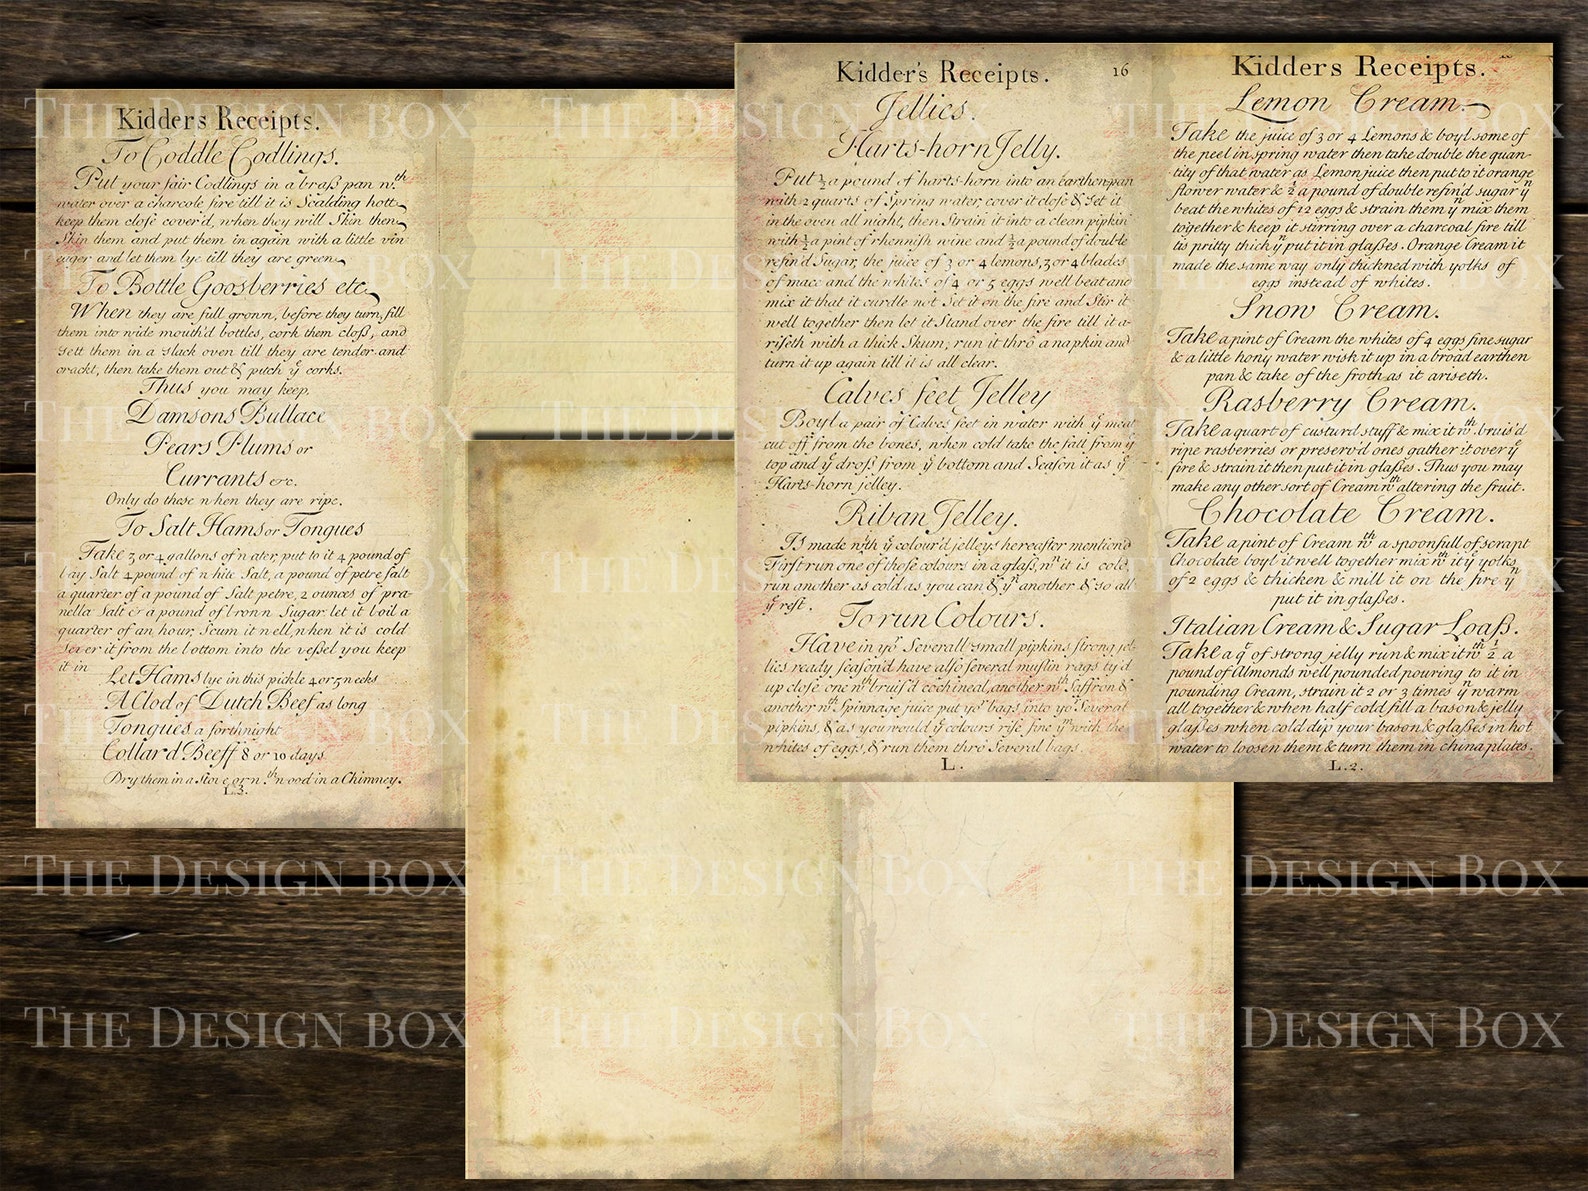 Kidders Receipts.
To Coddle Codlings.
Put your fair Codlings in a braſs pan wth
water over a charcole fire till it is Scalding hott
keep them cloſe cover'd, when they will Skin then
Skin them and put them in again with a little vin
eager and let them lye till they are green
To Bottle Goosberries etc
When they are full grown, before they turn, fill
them into wide mouth'd bottles, cork them cloſs, and
sett them in a slack oven till they are tender and
crackt, then take them out & pitch ye corks.
Thus you may keep
Damsons Bullace
Pears Plums or
Currants etc.
Only do these when they are ripe.
To Salt Hams or Tongues
Take 3 or 4 gallons of water, put to it 4 pound of
bay Salt 4 pound of white Salt, a pound of petre salt
a quarter of a pound of Salt petre, 2 ounces of pra-
nella Salt & a pound of brown Sugar let it boil a
quarter of an hour, Scum it well, when it is cold
Sever it from the bottom into the veſsel you keep
it in
Let Hams lye in this pickle 4 or 5 weeks
A Clod of Dutch Beef as long
Tongues a forthnight
Collard Beeff 8 or 10 days
Dry them in a Stove or wth wood in a Chimney.
L.3.
Kidder's Receipts. 16
Jellies.
Harts-horn Jelly.
Put ½ a pound of harts-horn into an earthen pan
with 2 quarts of Spring water, cover it cloſe & Set it
in the oven all night, then Strain it into a clean pipkin
with ½ a pint of rhennish wine and ½ a pound of double
refin'd Sugar, the juice of 3 or 4 lemons, 3 or 4 blades
of mace and the whites of 4 or 5 eggs well beat and
mix it that it curdle not Set it on the fire and Stir it
well together then let it Stand over the fire till it a-
riſeth with a thick Skum; run it thrō a napkin and
turn it up again till it is all clear.
Calves feet Jelley
Boyl a pair of Calves feet in water with ye meat
cut off from the bones, when cold take the fatt from ye
top and ye droſs from ye bottom and Seaſon it as ye
Harts-horn jelley.
Riban Jelley.
Is made wth ye colour'd jelleys hereafter mention'd
First run one of theſe colours in a glaſs, wn it is cold,
run another as cold as you can & yn another & so all
ye reſt.
To run Colours.
Have in yor Severall small pipkins strong jel-
lies ready ſeaſon'd have alſo ſeveral muſlin rags ty'd
up cloſe one wth bruis'd cochineal, another wth Saffron &
another wth Spinnage juice put yor bags into yor Several
pipkins, & as you would ye colours riſe, fine ym with the
whites of eggs, & run them thrō Several bags.
L.
Kidders Receipts.
Lemon Cream.
Take the juice of 3 or 4 Lemons & boyl some of
the peel in spring water then take double the quan-
tity of that water as Lemon juice then put to it orange
flower water & ½ a pound of double refin'd sugar yn
beat the whites of 12 eggs & strain them yn mix them
together & keep it stirring over a charcoal fire till
tis pritty thick yn put it in glaſses. Orange Cream it
made the same way only thickned with yolks of
eggs instead of whites.
Snow Cream.
Take a pint of Cream the whites of 4 eggs fine sugar
& a little hony water wisk it up in a broad earthen
pan & take of the froth as it ariseth.
Rasberry Cream.
Take a quart of custurd stuff & mix it wth bruis'd
ripe rasberries or preserv'd ones gather it over ye
fire & strain it then put it in glaſses. Thus you may
make any other sort of Cream wth altering the fruit.
Chocolate Cream.
Take a pint of Cream wth a spoonfull of scrapt
Chocolate boyl it well together mix wth it ye yolks
of 2 eggs & thicken & mill it on the fire yn
put it in glaſses.
Italian Cream & Sugar Loaſs.
Take a qt of strong jelly run & mix it wth ½ a
pound of Almonds well pounded pouring to it in
pounding Cream, strain it 2 or 3 times yn warm
all together & when half cold fill a bason & jelly
glaſses when cold dip your bason & glaſses in hot
water to loosen them & turn them in china plates.
L.2.
THE DESIGN BOX